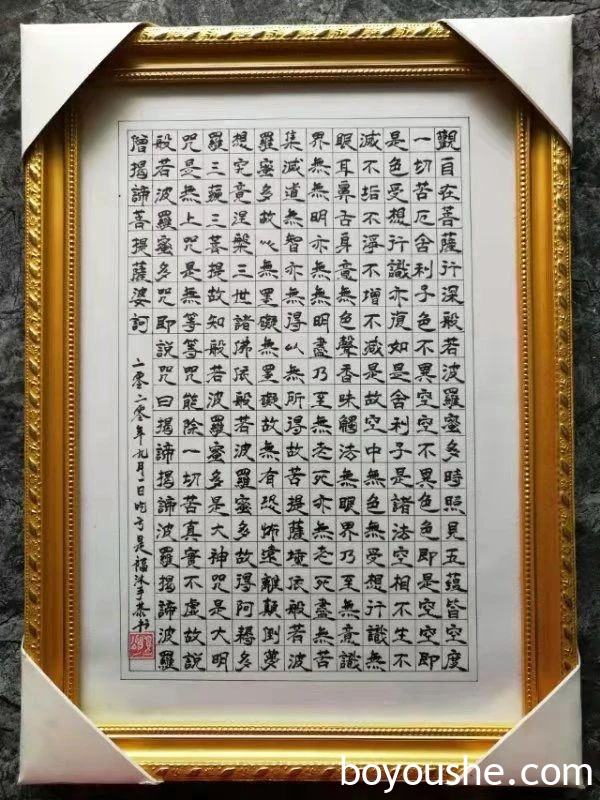 觀自在菩薩行深般若波羅蜜多時照見五蘊皆空度
一切苦厄舍利子色不異空空不異色色即是空空即
是色受想行識亦復如是舍利子是諸法空相不生不
滅不垢不淨不增不减是故空中無色無受想行識無
眼耳鼻舌身意無色聲香味觸法無眼界乃至無意識
界無無明亦無無明盡乃至無老死亦無老死盡無苦
集滅道無智亦無得以無所得故菩提薩埵依般若波
羅蜜多故心無罣礙無罣礙故無有恐怖遠離顛倒夢
想究竟涅槃三世諸佛依般若波羅蜜多故得阿耨多
羅三藐三菩提故知般若波羅蜜多是大神咒是大明
咒是無上咒是無等等咒能除一切苦真實不虛故說
般若波羅蜜多咒即說咒曰揭諦揭諦波羅揭諦波羅
僧揭諦菩提薩婆訶
二零二零年九月一日吃亏是福沐手恭书
boyoushe.com